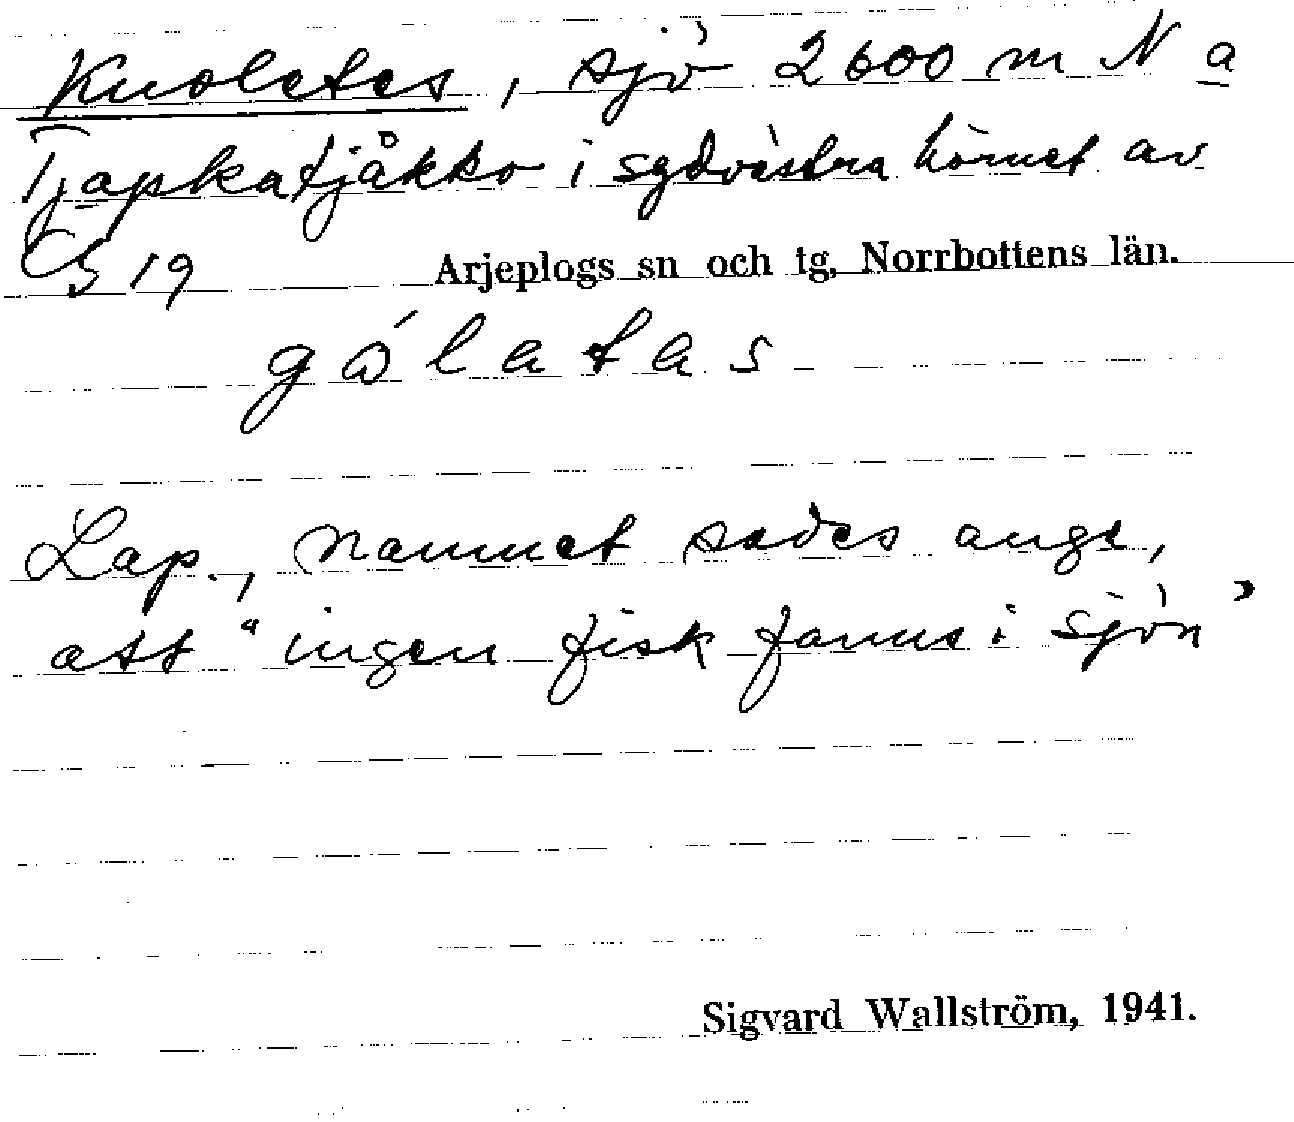 Kuoletes, sjö 2600 m N a
Tjapkatjåkko i sydvästra hörnet av
C5 19 Arjeplogs sn och tg, Norrbottens län.
gólatas
Lap., namnet sades ange,
att "ingen fisk fanns i sjön"
Sigvard Wallström, 1941.